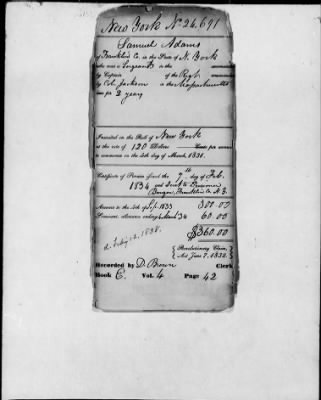 New York No 24.691
Samuel Adams
of Franklin Co. in the State of N. York
who was a Sergeant in the
by Captain of the Regt. commanded
by Col. Jackson in the Massachusetts
line for 2 years
Inscribed on the Roll of New York
at the rate of 120 Dollars Cents per annum
to commence on the 4th day of March, 1831.
Certificate of Pension issued the 7th day of Feb.
1834 and Sent to Pensioner
Bangor, Franklin Co. N.Y.
Arrears to the 4th of Sep. 1833 300.00
Semi-anl. allowance ending 4 March 34 60.00
$360.00
1838.
Revolutionary Claim,
Act June 7, 1832.
Recorded by D. Brown Clerk
Book C. Vol. 4 Page 42